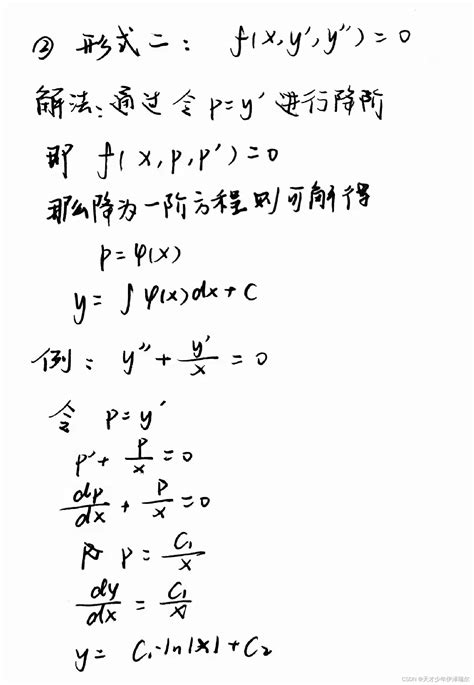 ② 形式二: f(x,y',y'')=0
解法:通过令 p=y' 进行降阶
即 f(x,p,p')=0
那么降为一阶方程则可解得
p=φ(x)
y=∫φ(x)dx+C
例: y''+y'/x=0
令 p=y'
p'+p/x=0
dp/dx+p/x=0
p=C₁/x
dy/dx=C₁/x
y=C₁·ln|x|+C₂
CSDN @天才少年伊泽瑞尔